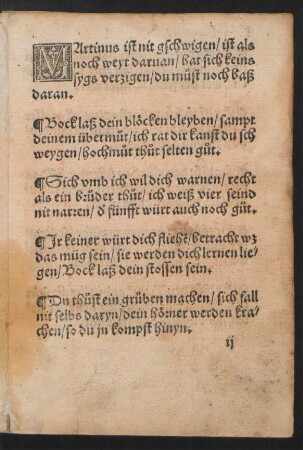 MArtinus ist nit gschwigen/ ist als
noch weyt daruan/ hat sich keins
sygs verzigen/ du můst noch baß
daran.
¶Bock laß dein blöcken bleyben/ sampt
deinem übermůt/ ich rat dir kanst du sch
weygen/ hochmůt thůt selten gůt.
¶Sich vmb ich wil dich warnen/ recht
als ein brůder thůt/ ich weiß vier seind
nit narren/ ď fünfft würt auch noch gůt.
¶Ir keiner würt dich flieht/ betracht wz
das müg sein/ sie werden dich lernen lie
gen/ Bock laß dein stossen sein.
¶Du thůst ein grůben machen/ sich fall
nit selbs daryn/ dein hörner werden kra
chen/ so du jn kompst hinyn.
ij